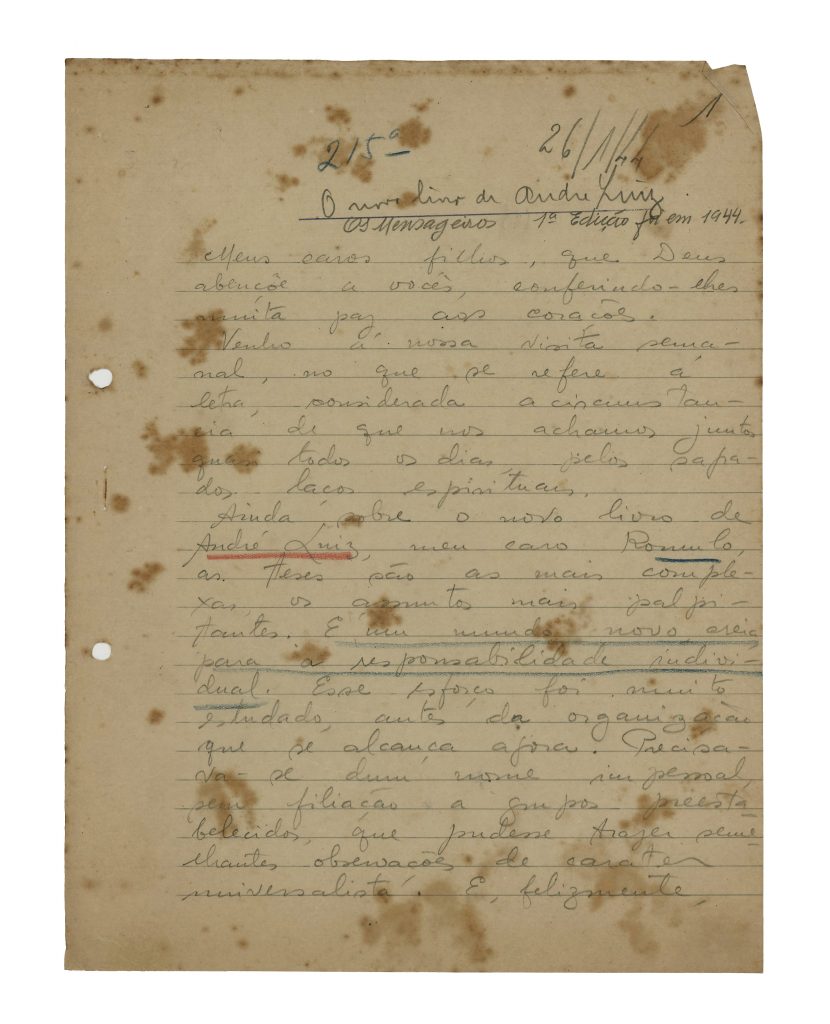 1
215ª 26/1/44
O novo livro de André Luiz
Os Mensageiros 1ª Edição foi em 1944.
Meus caros filhos, que Deus
abençõe a vocês, conferindo-lhes
muita paz aos corações.
Venho á nossa visita sema-
nal, no que se refere á
letra, considerada a circunstan-
cia de que nos achamos juntos
quasi todos os dias pelos sagra-
dos laços espirituais.
Ainda sobre o novo livro de
André Luiz, meu caro Romulo,
as teses são as mais comple-
xas, os assuntos mais palpi-
tantes. É um mundo novo, creia,
para a responsabilidade indivi-
dual. Esse esforço foi muito
estudado, antes da organização
que se alcança agora. Precisa-
va-se dum nome impessoal,
sem filiação a grupos preesta
belecidos, que pudesse trazer seme
lhantes observações de carater
universalista. E, felizmente,